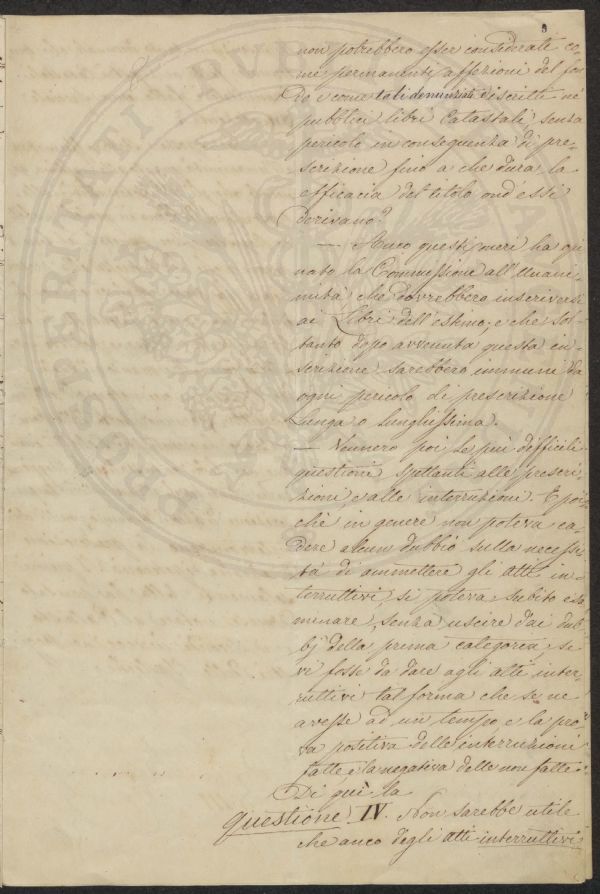 non potrebbero esser considerate co-
me permanenti affezioni del fon
do e come tali denunziati e iscritti ne'
pubblici libri Catastali, senza
pericolo in conseguenza di pre-
scrizione fino a che dura la
efficacia del titolo ond'essi
derivano?
— Anco questi oneri ha opi
nato la Commissione all'Unani-
mità che dovrebbero inscriversi
ai Libri dell'estimo; e che sol-
tanto dopo avvenuta questa in-
scrizione sarebbero immuni da
ogni pericolo di prescrizione
lunga o lunghissima.
— Vennero poi le più difficili
questioni spettanti alle prescri-
zioni e alle interruzioni. E poi-
chè in genere non poteva ca-
dere alcun dubbio sulla necessi
tà di ammettere gli atti in-
terruttivi, si poteva subito esa
minare, senza uscire dai dub-
bj della prima categoria, se
vi fosse da dare agli atti inter-
ruttivi tal forma che se ne
avesse ad un tempo e la pro
va positiva delle interruzioni
fatte, e la negativa delle non fatte.
Di quì la
Questione IV. Non sarebbe utile
che anco degli atti interruttivi
PROSPERITATI PVBL